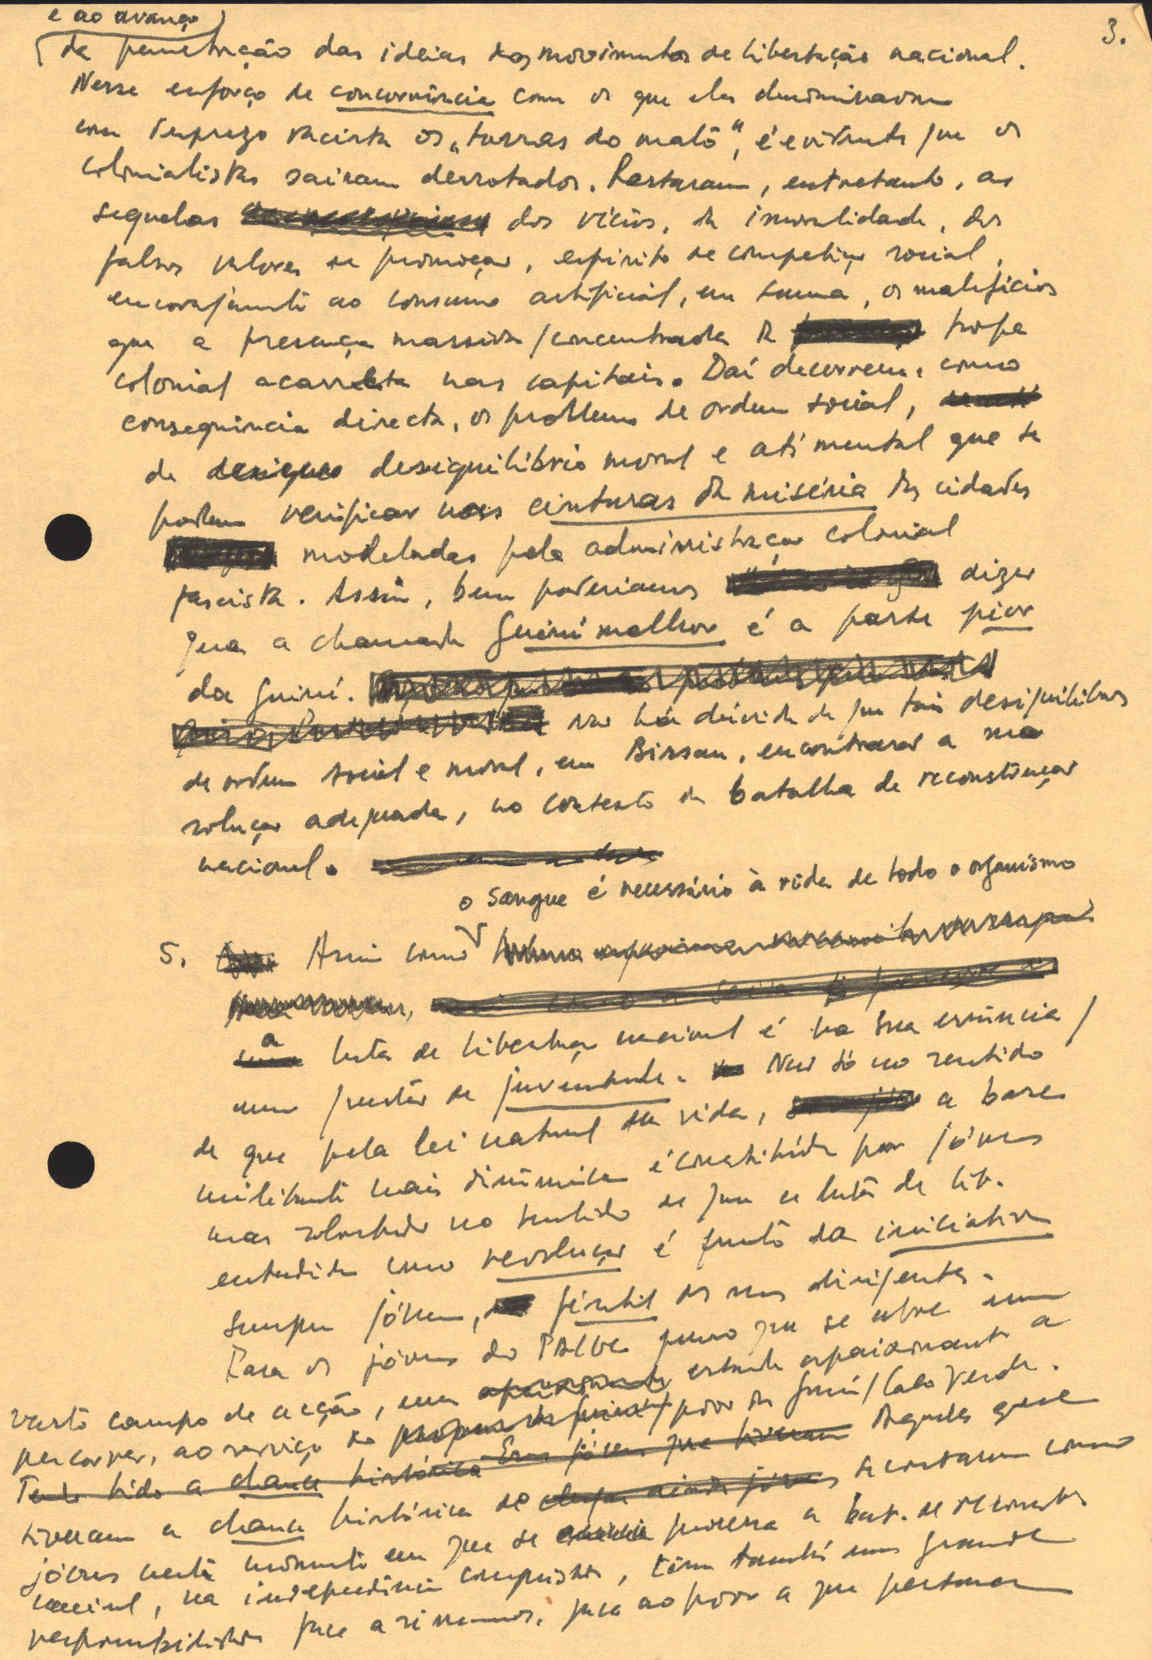 3.
e ao avanço
da penetração das ideias dos movimentos de libertação nacional.
Nesse esforço de concorrência com os que eles denominavam
com desprezo racista os „turras do mato", é evidente que os
colonialistas sairam derrotados. Restaram, entretanto, as
sequelas dos vícios, da imoralidade, dos
falsos valores de promoção, espírito de competição social,
encorajamento ao consumo artificial, em suma, os malefícios
que a presença massiva/concentrada da tropa
colonial acarreta nas capitais. Daí decorrem, como
consequência directa, os problemas de ordem social,
de desiquilíbrio moral e até mental que se
podem verificar nas cinturas da miséria das cidades
modeladas pela administração colonial
fascista. Assim, bem poderiamos dizer
que a chamada Guiné melhor é a parte pior
da Guiné.
não há dúvida de que tais desiquilíbrios
de ordem social e moral, em Bissau, encontrarão a sua
solução adequada, no contexto da batalha de reconstrução
nacional.
o sangue é necessário à vida de todo o organismo
5. Assim como
a luta de libertação nacional é na sua essência
uma questão de juventude. Não só no sentido
de que pela lei natural da vida, a base
militante mais dinâmica é constituída por jóvens
mas sobretudo no sentido de que a luta de lib.
entendida como revolução é fruto da iniciativa
sempre jóvem, fértil dos seus dirigentes.
Para os jóvens do PAIGC penso que se abre um
vasto campo de acção, uma estrada apaixonante a
percorrer, ao serviço do povo da Guiné/Cabo Verde.
Tendo tido a chance histórica Esses jóvens que tiveram Aqueles que
tiveram a chance histórica de se contarem como
jóvens neste momento em que se processa a bat. de reconstr.
nacional, na independência conquistada, têm também uma grande
responsabilidade face a si mesmos, face ao povo a que pertencem